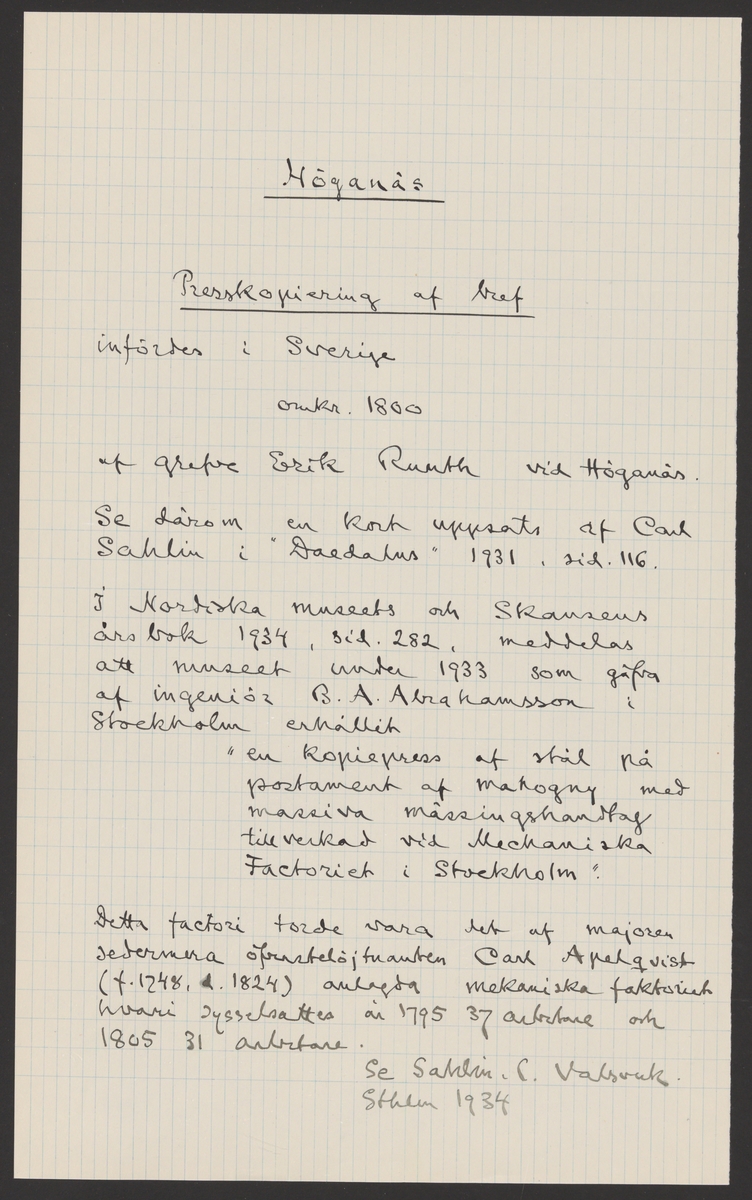 Höganäs
Presskopiering af bref
infördes i Sverige
omkr. 1800
af grefve Erik Ruuth vid Höganäs.
Se därom en kort uppsats af Carl
Sahlin i "Daedalus" 1931, sid. 116.
I Nordiska museets och Skansens
årsbok 1934, sid. 282, meddelas
att museet under 1933 som gåfva
af ingeniör B. A. Abrahamsson i
Stockholm erhållit
"en kopiepress af stål på
postament af mahogny med
massiva mässingshandtag
tillverkad vid Mechaniska
Factoriet i Stockholm".
Detta factori torde vara det af majoren
sedermera öfverstelöjtnanten Carl Apelqvist
(f. 1748, d. 1824) anlagda mekaniska faktoriet
hvari sysselsattes år 1795 37 arbetare och
1805 31 arbetare.
Se Sahlin, C. Valsverk.
Sthlm 1934